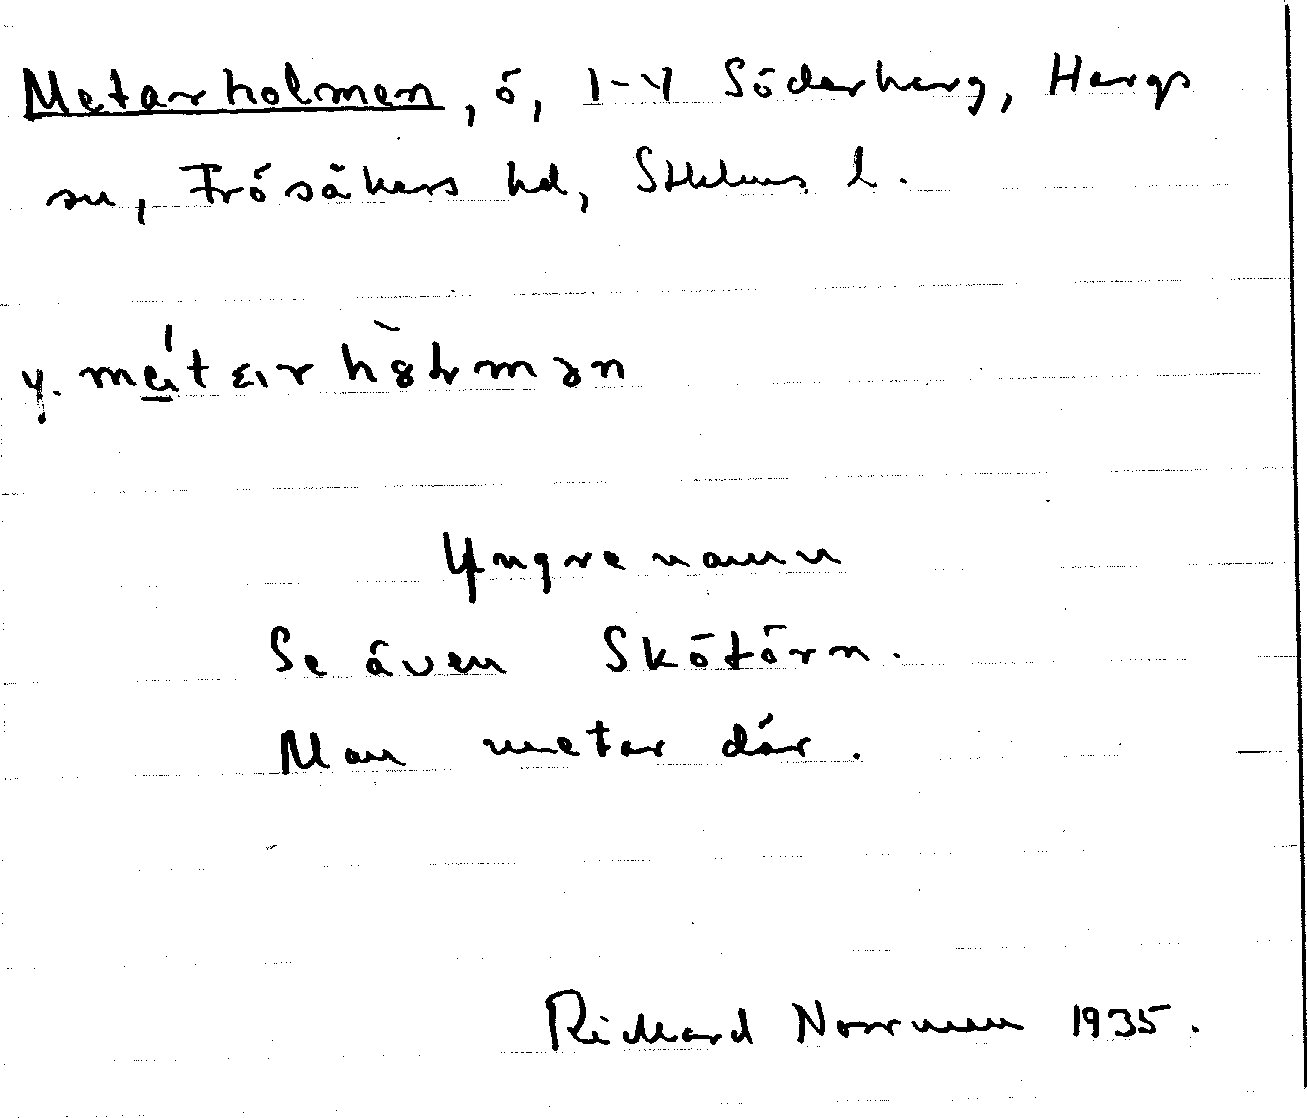 Metarholmen, ö, 1-4 Söderberg, Hargs
sn, Frösåkers hd, Sthlms l.
y.
Yngre namn
Se även Skötörn.
Man metar där.
Rickard Norrman 1935.